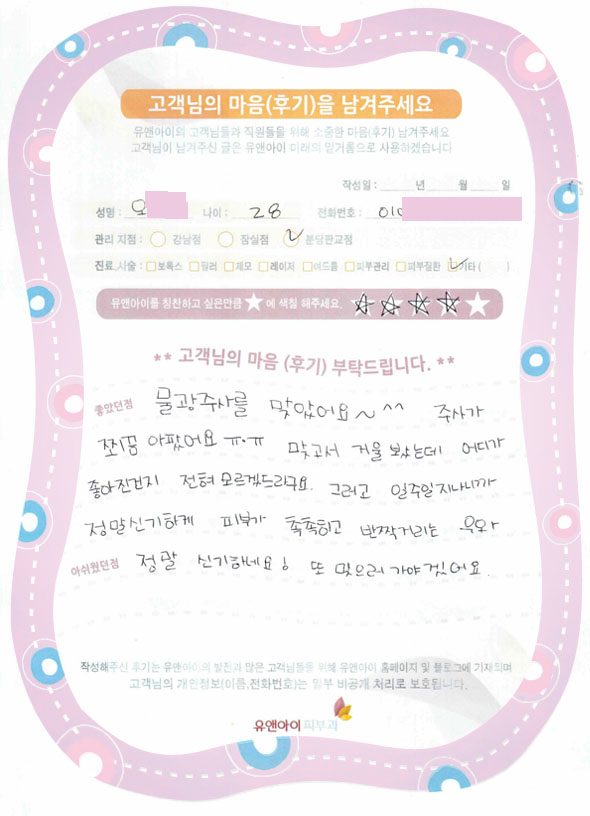 고객님의 마음(후기)을 남겨주세요
유앤아이의 고객님들과 직원들을 위해 소중한 마음(후기) 남겨주세요
고객님이 남겨주신 글은 유앤아이 미래의 밑거름으로 사용하겠습니다
작성일 : 년 월 일
성명 : 오 나이 : 28 전화번호 : 010
관리 지점 : 강남점 잠실점 분당판교점
진료,시술 : 보톡스 필러 제모 레이저 여드름 피부관리 피부질환 기타 ( )
유앤아이를 칭찬하고 싶은만큼 ★ 에 색칠 해주세요 ★★★★★
** 고객님의 마음 (후기) 부탁드립니다. **
좋았던점 물광주사를 맞았어요~^^ 주사가
쪼끔 아팠어요 ㅠ.ㅠ 맞고서 거울 봤는데 어디가
좋아진건지 전혀 모르겠드라구요. 그러고 일주일지나니까
정말신기하게 피부가 촉촉하고 반짝거리는 우와
아쉬웠던점 정말 신기하네요! 또 맞으러 가야겠어요.
작성해주신 후기는 유앤아이의 발전과 많은 고객님들을 위해 유앤아이 홈페이지 및 블로그에 기재되며
고객님의 개인정보(이름,전화번호)는 일부 비공개 처리로 보호됩니다.
유앤아이 피부과